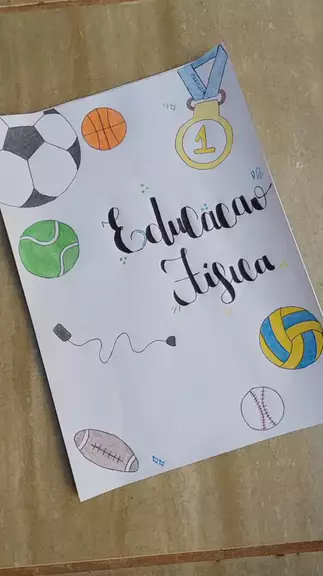 1
Educaçao
Física